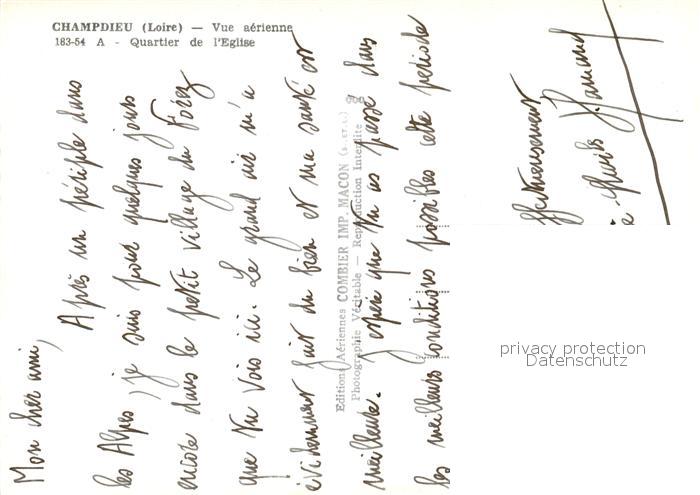 CHAMPDIEU (Loire) — Vue aérienne
183-54 A - Quartier de l'Eglise
Mon cher ami,
Après un périple dans
les Alpes, je suis pour quelques jours
encore dans le petit village du Forez
que tu vois ici. Le grand air m'a
évidemment fait du bien et ma santé est
meilleure. J'espère que tu as passé dans
les meilleures conditions possibles cette période
Editions Aériennes COMBIER IMP. MACON
Photographie Véritable — Reproduction Interdite
privacy protection
Datenschutz